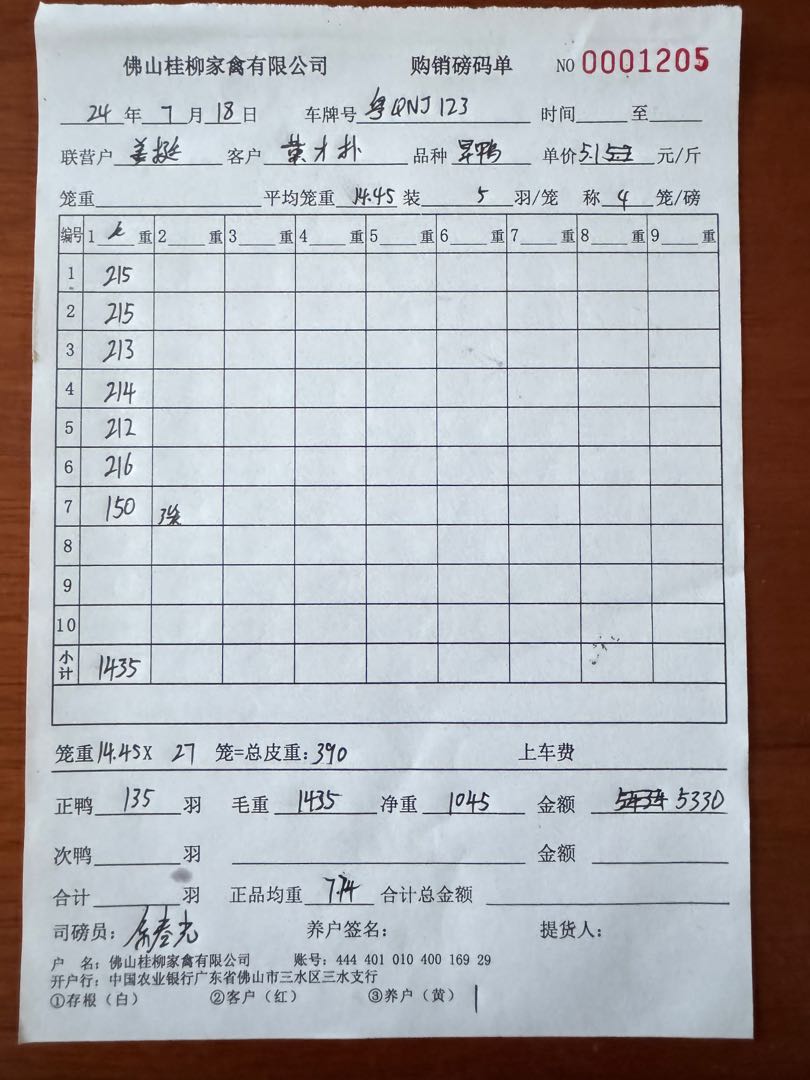 佛山桂柳家禽有限公司 购销磅码单 NO 0001205
24 年 7 月 18 日 车牌号 粤QNJ123 时间 至
联营户 姜挺 客户 英才扑 品种 旱鸭 单价 5.1 元/斤
笼重 平均笼重 14.45 装 5 羽/笼 称 4 笼/磅
编号 1 重 2 重 3 重 4 重 5 重 6 重 7 重 8 重 9 重
1 215
2 215
3 213
4 214
5 212
6 216
7 150
8
9
10
小计 1435
笼重 14.45X 27 笼=总皮重: 390 上车费
正鸭 135 羽 毛重 1435 净重 1045 金额 5330
次鸭 羽 金额
合计 羽 正品均重 7.74 合计总金额
司磅员: 养户签名: 提货人:
户 名: 佛山桂柳家禽有限公司 账号: 444 401 010 400 169 29
开户行: 中国农业银行广东省佛山市三水区三水支行
①存根（白） ②客户（红） ③养户（黄）